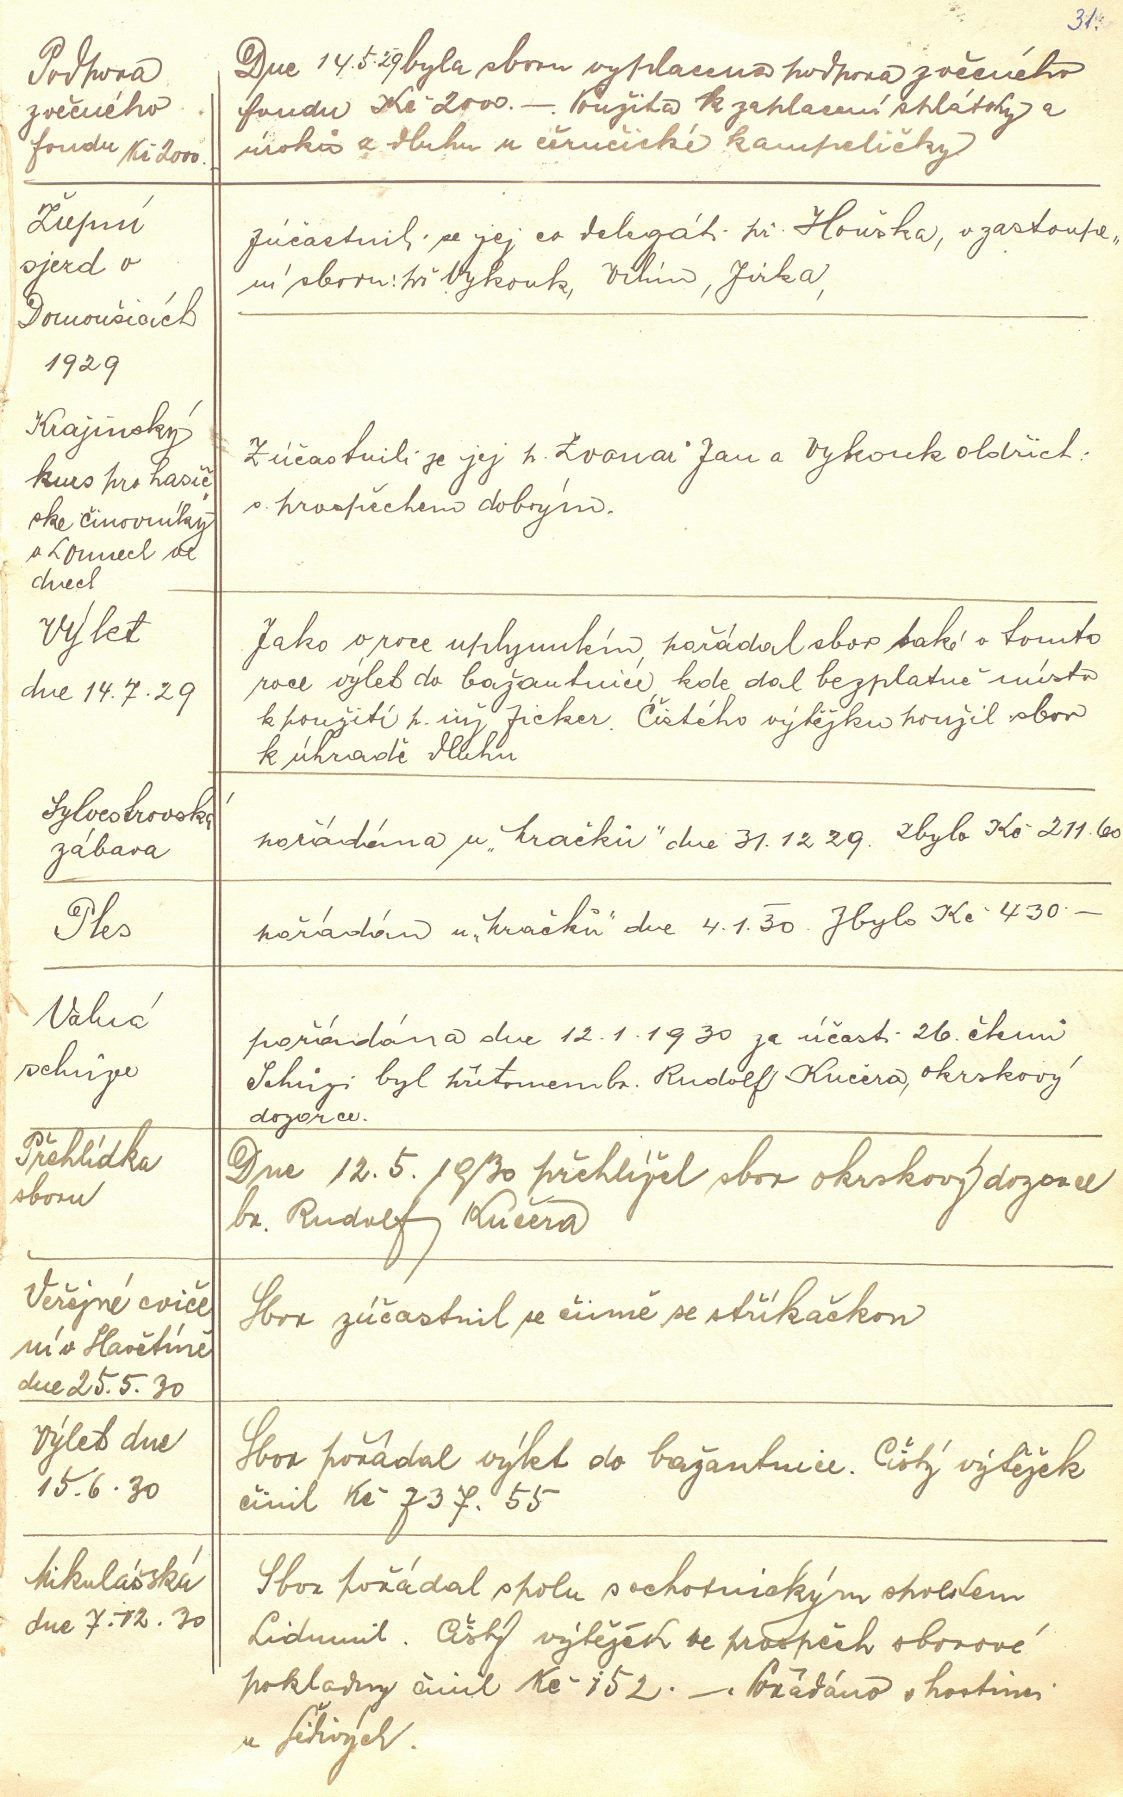 31.
Podpora
zvěčného
fondu Kč 2000.
Dne 14.5.29 byla sboru vyplacena podpora zvěčného
fondu Kč 2000.— Použita k zaplacení splátky a
úroků z dluhu u černčické kampeličky
Župní
sjezd v
Domoušicích
1929
Zúčastnili se jej co delegáti př. Houška, v zastoupe„
ní sboru: př Vykouk, Vilím, Jirka,
Krajinský
kurs pro hasič„
ské činovníky
v Lounech ve
dnech
Zúčastnili se jej p. Zvonař Jan a Vykouk Oldřich.
s prospěchem dobrým.
Výlet
dne 14.7.29
Jako v roce uplynulém, pořádal sbor také v tomto
roce výlet do bažantnice, kde dal bezplatně místo
k použití p. inž Ficker. Čistého výtěžku použil sbor
k úhradě dluhu
Sylvestrovská
zábava
pořádána u „Hračků" dne 31.12 29. Zbylo Kč 211.60
Ples
pořádán u „Hračků" dne 4.1.30. Zbylo Kč 430—
Valná
schůze
pořádána dne 12.1.1930 za účasti 26. členů
Schůzi byl přítomem br. Rudolf Kučera, okrskový
dozorce.
Přehlídka
sboru
Dne 12.5.1930 přehlížel sbor okrskový dozorce
br. Rudolf Kučera
Veřejné cviče
ní v Slavětíně
dne 25.5.30
Sbor zúčastnil se činně se stříkačkou
Výlet dne
15.6.30
Sbor pořádal výlet do bažantnice. Čistý výtěžek
činil Kč 737.55
Mikulášská
dne 7.12.30
Sbor pořádal spolu s ochotnickým spolkem
Lidumil. Čistý výtěžek ve prospěch sborové
pokladny činil Kč 152.— Pořádáno v hostinci
u